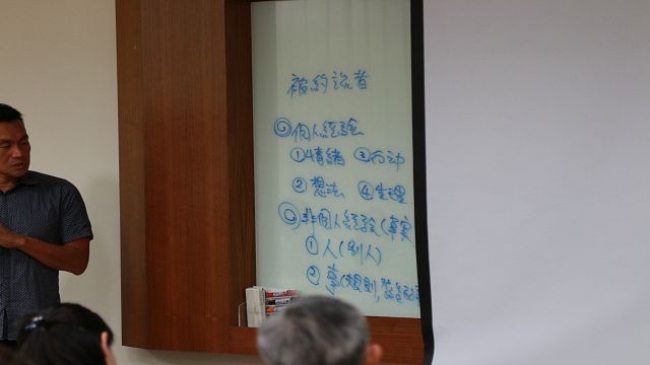 被約談者
◎個人經驗
①情緒 ③行动
②想法 ④生理
◎非個人經驗(事實
①人(別人)
②事(規則,